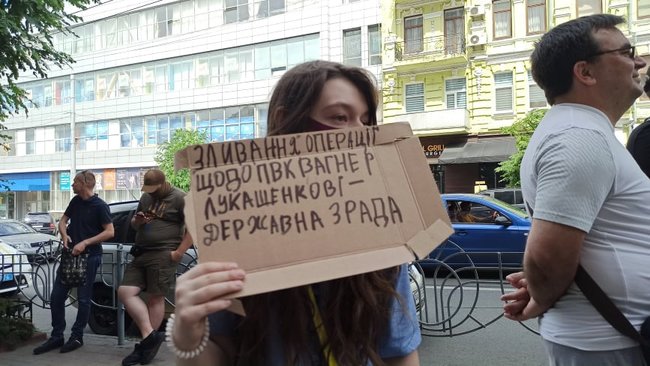 ЗЛИВАННЯ ОПЕРАЦІЇ
ЩОДО ПВК ВАГНЕР
ЛУКАШЕНКОВІ –
ДЕРЖАВНА ЗРАДА
GRILL